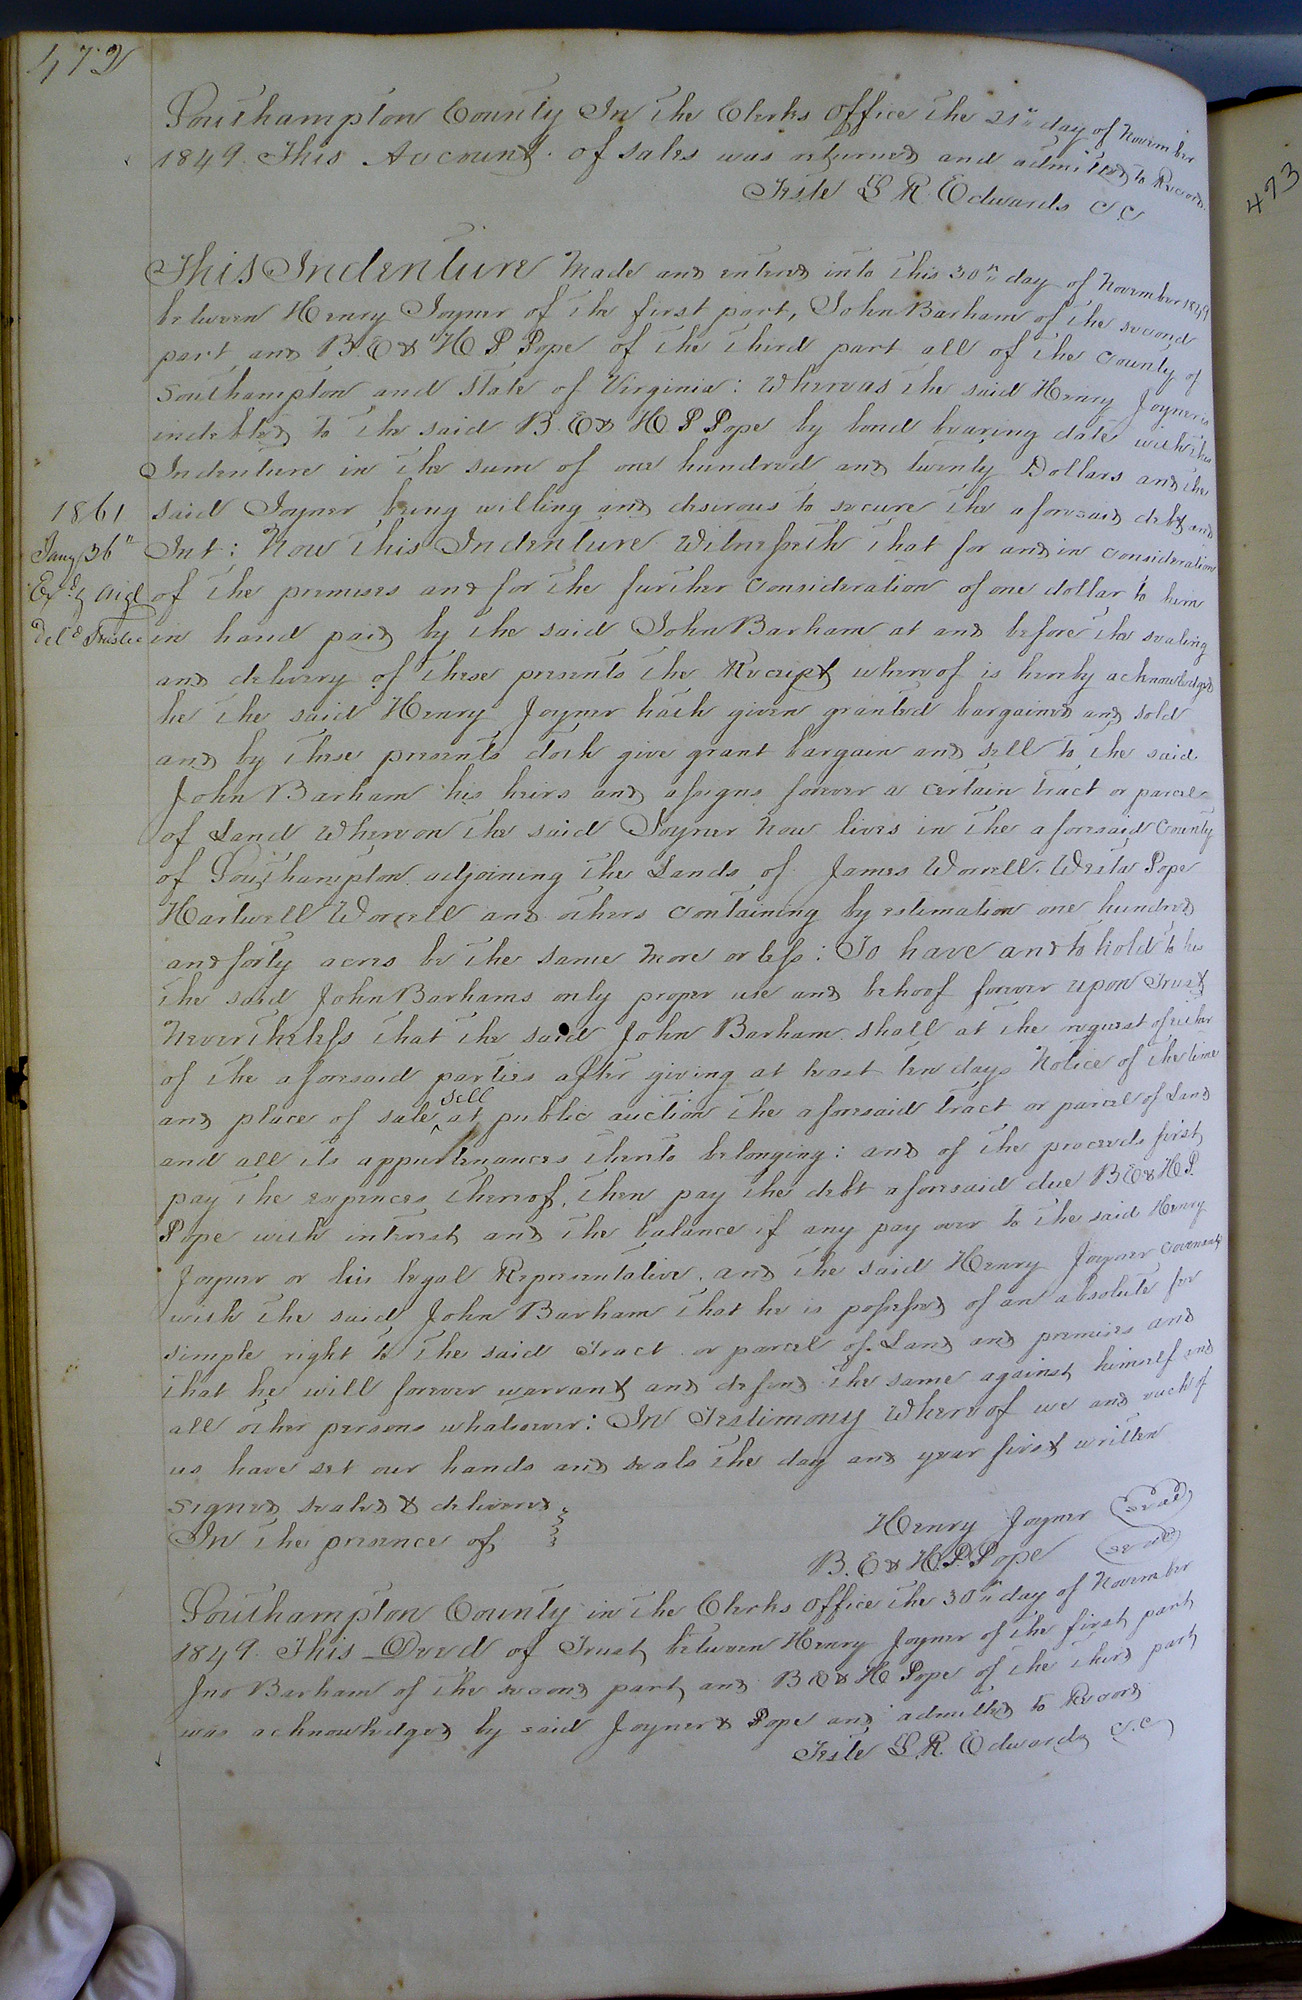 472
Southampton County In the Clerks Office the 21st day of November
1849. This Account of sales was returned and admitted to Record
Teste L R. Edwards C.C
This Indenture Made and entered into this 30th day of November 1849
between Henry Joyner of the first part, John Barham of the second
part and B. E & H P Pope of the third part all of the County of
Southampton and State of Virginia: Whereas the said Henry Joyner is
indebted to the said B. E & H P Pope by bond bearing date with this
Indenture in the sum of one hundred and twenty Dollars and the
said Joyner being willing and desirous to secure the aforesaid debt and
Int: Now this Indenture Witnesseth that for and in consideration
of the premises and for the further consideration of one dollar to him
in hand paid by the said John Barham at and before the sealing
and delivery of these presents the Receipt whereof is hereby acknowledged
he the said Henry Joyner hath given granted bargained and sold
and by these presents doth give grant bargain and sell to the said
John Barham his heirs and assigns forever a certain tract or parcel
of Land Whereon the said Joyner Now lives in the aforesaid County
of Southampton adjoining the Lands of James Worrell. Wesla Pope
Hartwell Worrell and others containing by estimation one hundred
and forty acres be the same more or less: To have and to hold to his
the said John Barhams only proper use and behoof forever upon Trust
Nevertheless that the said John Barham shall at the request of either
of the aforesaid parties after giving at least ten days Notice of the time
and place of sale sell at public auction the aforesaid tract or parcel of Land
and all its appurtenances thereto belonging: and of the proceeds first
pay the expences thereof, then pay the debt aforesaid due B E & H P.
Pope with interest and the balance if any pay over to the said Henry
Joyner or his legal Representative. and the said Henry Joyner covenants
with the said John Barham that he is possessed of an absolute fee
simple right to the said Tract or parcel of Land and premises and
that he will forever warrant and defend the same against himself and
all other persons whatsoever: In Testimony Whereof we and each of
us have set our hands and seals the day and year first written
signed sealed & delivered
In the presence of
Henry Joyner (seal)
B. E & H. P. Pope (seal)
Southampton County in the Clerks Office the 30th day of November
1849. This Deed of Trust between Henry Joyner of the first part
Jno Barham of the second part and B E & H Pope of the third part
was acknowledged by said Joyner & Pope and admitted to Record
Teste L. R. Edwards C.C
1861
Jany 36"
Exd & Origl
Deld Trustee
473